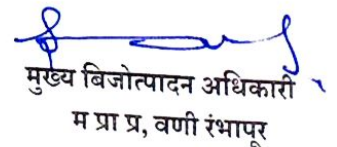 मुख्य बिजोत्पादन अधिकारी
म प्रा प्र, वणी रंभापूर